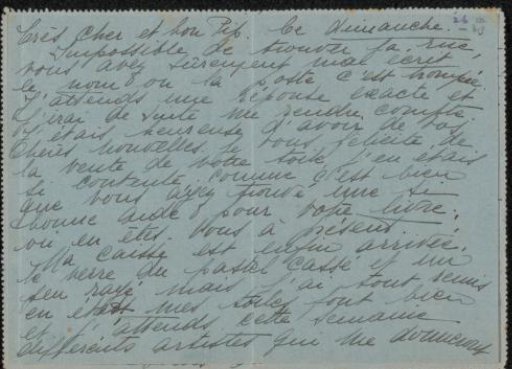 Très cher et bon Pip. Ce dimanche.
Impossible de trouver la rue,
vous avez sûrement mal écrit
le nom ou la poste c'est trompée
J'attends une réponse exacte et
j'irai de suite me rendre compte
J'étais heureuse d'avoir de vos
chères nouvelles je vous félicite de
la vente de votre toile j'en étais
si contente comme c'est bien
que vous avez trouvé une si
bonne aide pour votre livre.
ou en êtes vous à présent.
Ma caisse est enfin arrivée.
le verre du pastel cassé et un
peu rayé mais j'ai tout remis
en état mes toiles font bien
et j'attends cette semaine
différents artistes qui me donneront